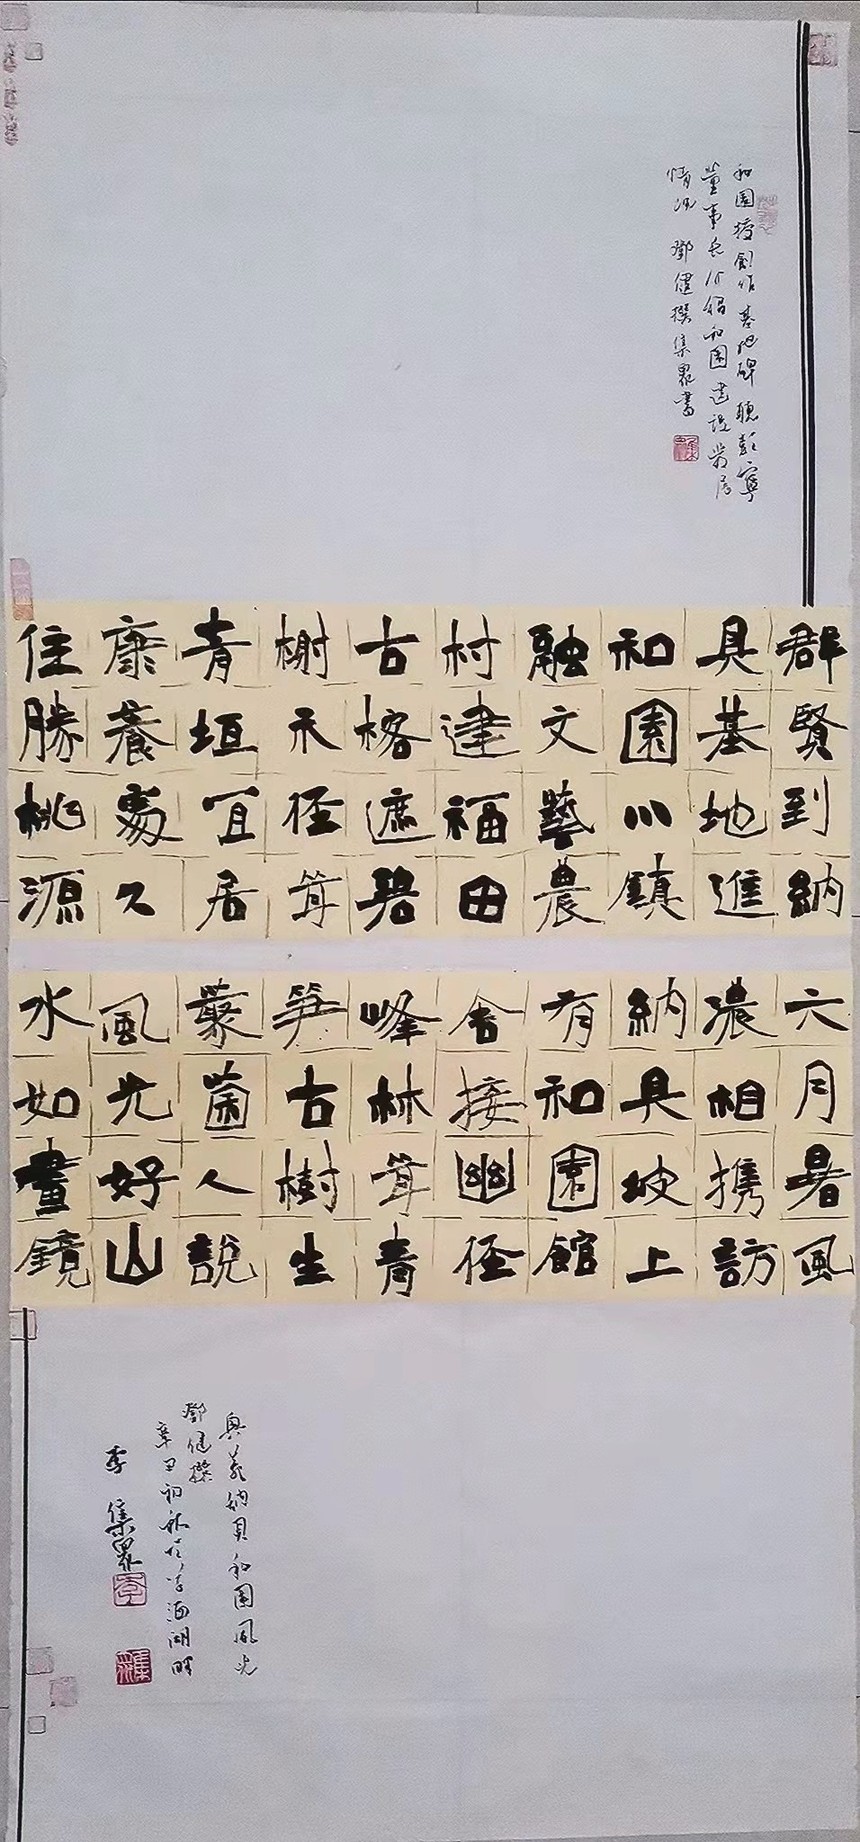 和園授創作基地碑聽彭寧
董事長介紹和園建設
情况 鄧健撰集眾書
群賢到納
具基地進
和園小鎮
融文藝農
村建福田
古榕遮碧
榭禾徑茸
青垣宜居
康養處久
住勝桃源
六月暑風
濃相携訪
納具坡上
有和園館
舍接幽徑
峰林茸青
笋古樹生
叢菌人說
風光好山
水如畫鏡
興義納具和園風光
鄧健撰
辛丑初秋於湖畔
李集眾